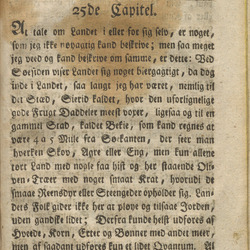 25de Capitel.
At tale om Landet i eller for sig selv, er noget,
som jeg ikke nøyagtig kand beskrive; men saa meget
jeg veed og kand beskrive om samme, er dette: Ved
Søesiden viser Landet sig noget biergagtigt, da dog
inde i Landet, saa langt jeg har været, nemlig til
det Stæd, Sierid kaldet, hvor den uforlignelige
gode Frugt Daddeler meest voxer, ligesaa og til en
gammel Stad, kaldet Bekie, som kand regnes at
være 4 a 5 Mile fra Søe-kanten, der seer man
hverken Skov, Agre eller Eng, men kun allene
tørt Land med nogle faa hist og her staaende Oli-
ven-Træer med noget smaat Krat, hvorudi de
smaae Reensdyr eller Steengeder opholder sig. Lan-
dets Folk gider ikke her at pløye og tilsaae Jorden,
uden gandske lidet; Derfra kunde helst udføres af
Hvede, Korn, Erter og Bønner med andet mere,
men af saadant udføres kun et lidet Qvantum. At